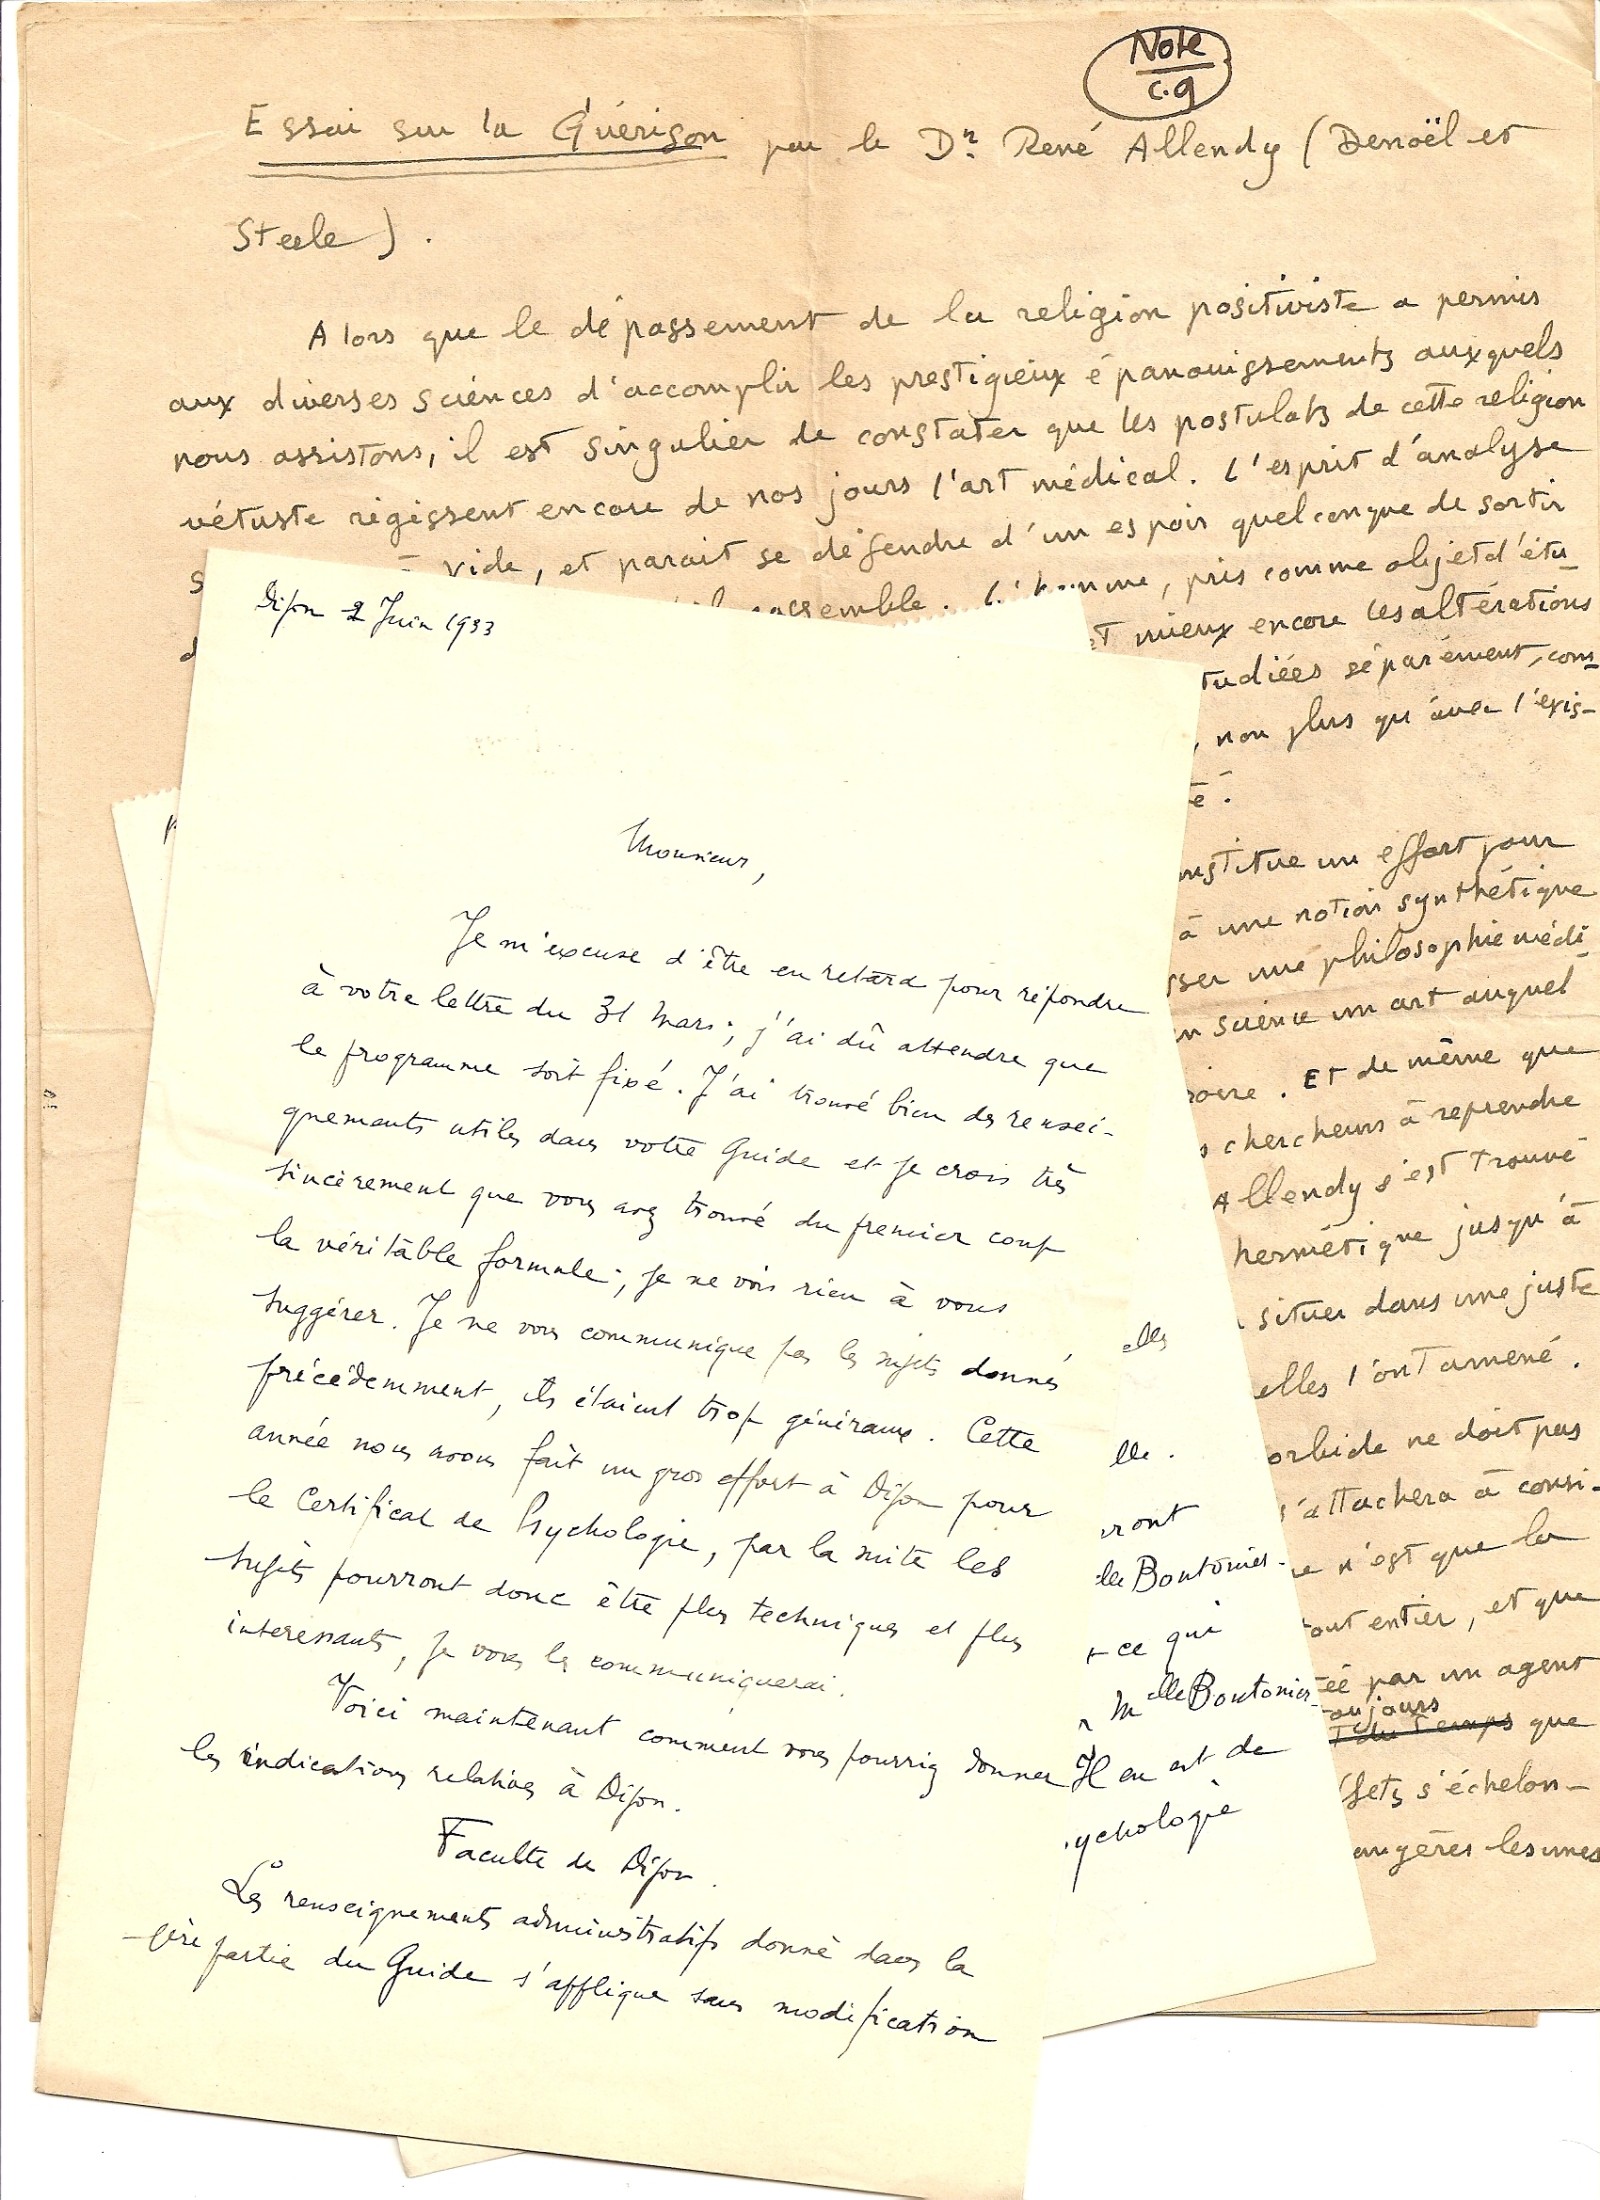 Note
c.g
Essai sur la Guérison par le Dr. René Allendy (Denoël et
Steele).
Alors que le dépassement de la religion positiviste a permis
aux diverses sciences d'accomplir les prestigieux épanouissements auxquels
nous assistons, il est singulier de constater que les postulats de cette religion
vétuste régissent encore de nos jours l'art médical. L'esprit d'analyse
s vide, et parait se défendre d'un espoir quelconque de sortir
d rassemble. L'homme, pris comme objet d'étu-
t mieux encore les altérations
tudiées séparément, com-
, non plus qu'avec l'exis-
té.
nstitue un effort pour
à une notion synthétique
sser une philosophie médi-
en science un art auquel
oire. Et de même que
s chercheurs à reprendre
Allendy s'est trouvé
hermétique jusqu'à
situer dans une juste
elles l'ont amené.
orbide ne doit pas
s'attachera à consi-
e n'est que la
tout entier, et que
tée par un agent
toujours
t du temps que
ffets s'échelon-
angères les unes
Dijon 2 Juin 1933
Monsieur,
Je m'excuse d'être en retard pour répondre
à votre lettre du 31 Mars; j'ai dû attendre que
le programme soit fixé. J'ai trouvé bien des rensei-
gnements utiles dans votre Guide et je crois très
sincèrement que vous avez trouvé du premier coup
la véritable formule; je ne vois rien à vous
suggérer. Je ne vous communique pas les sujets donnés
précédemment, ils étaient trop généraux. Cette
année nous avons fait un gros effort à Dijon pour
le Certificat de Psychologie, par la suite les
sujets pourront donc être plus techniques et plus
interessants, je vous les communiquerai.
Voici maintenant comment vous pourriez donner
les indications relatives à Dijon.
Faculté de Dijon.
Les renseignements administratifs donné dans la
1ère partie du Guide s'applique sans modification
elles
lle.
ront
lle Boutonier-
t ce qui
Mlle Boutonier-
Il en est de
ychologie